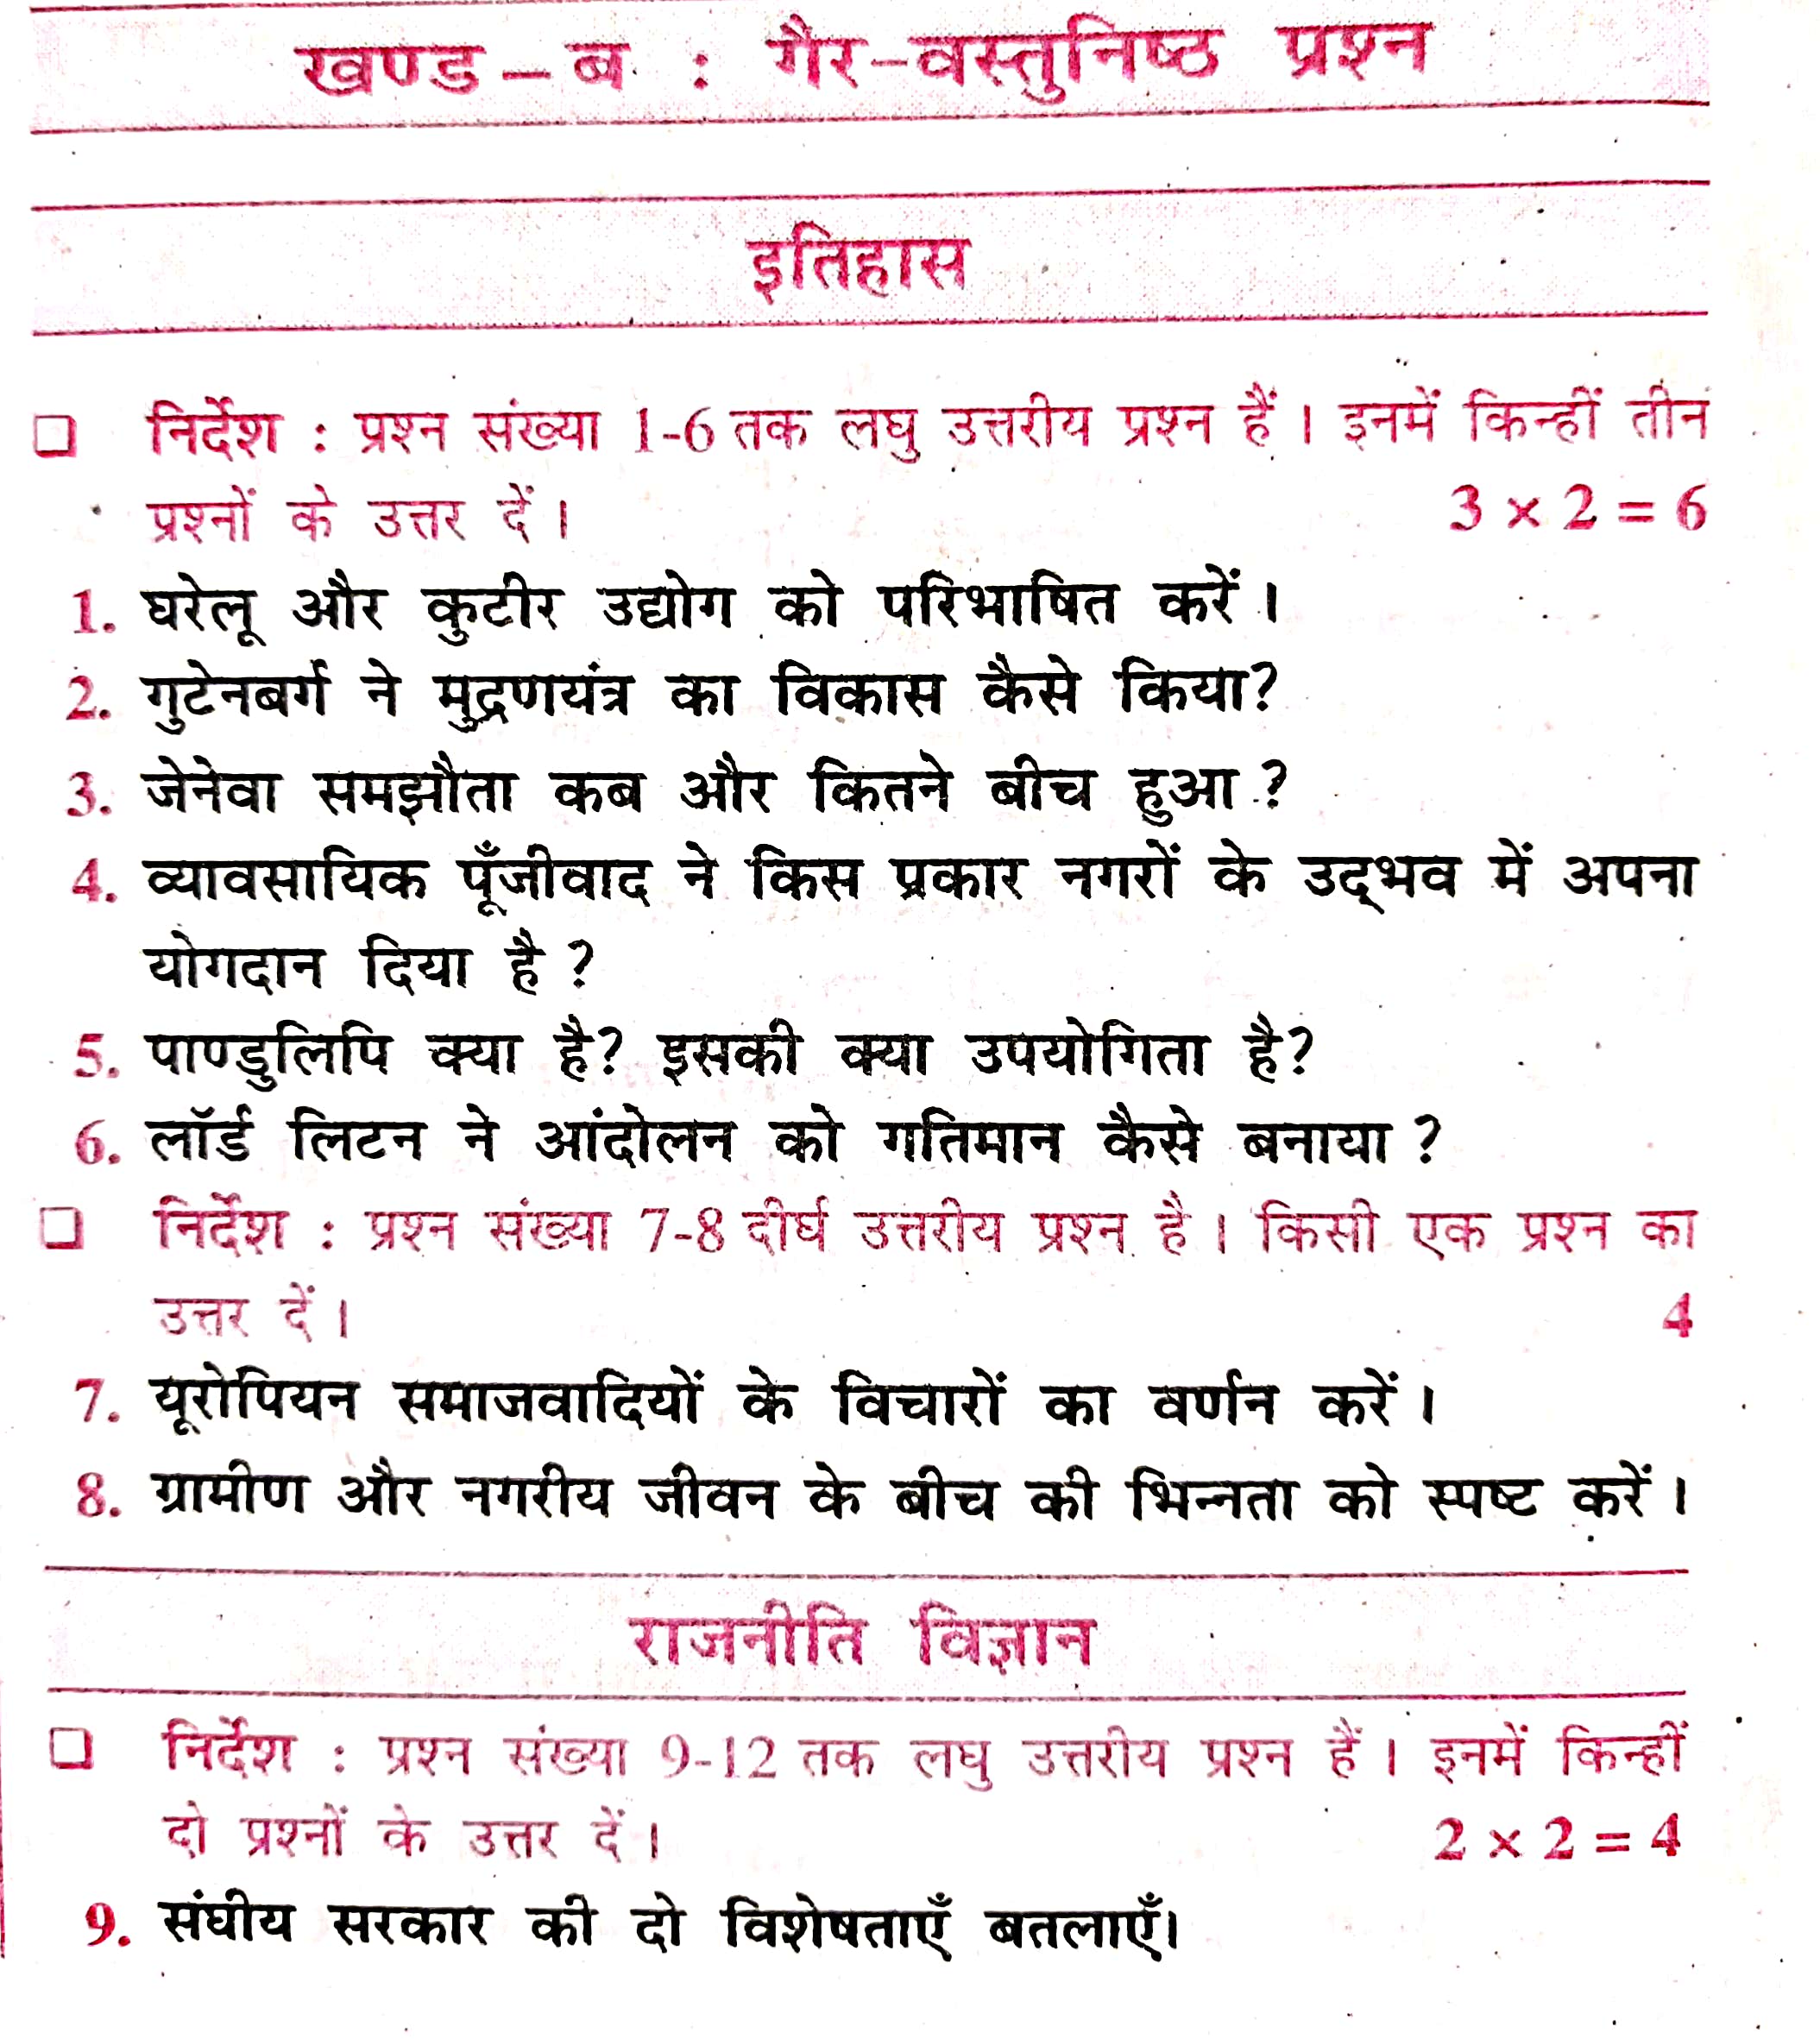 खण्ड – ब : गैर-वस्तुनिष्ठ प्रश्न
इतिहास
❑ निर्देश : प्रश्न संख्या 1-6 तक लघु उत्तरीय प्रश्न हैं । इनमें किन्हीं तीन
प्रश्नों के उत्तर दें । 3 × 2 = 6
1. घरेलू और कुटीर उद्योग को परिभाषित करें ।
2. गुटेनबर्ग ने मुद्रणयंत्र का विकास कैसे किया?
3. जेनेवा समझौता कब और कितने बीच हुआ ?
4. व्यावसायिक पूँजीवाद ने किस प्रकार नगरों के उद्भव में अपना
योगदान दिया है ?
5. पाण्डुलिपि क्या है? इसकी क्या उपयोगिता है?
6. लॉर्ड लिटन ने आंदोलन को गतिमान कैसे बनाया ?
❑ निर्देश : प्रश्न संख्या 7-8 दीर्घ उत्तरीय प्रश्न है । किसी एक प्रश्न का
उत्तर दें । 4
7. यूरोपियन समाजवादियों के विचारों का वर्णन करें ।
8. ग्रामीण और नगरीय जीवन के बीच की भिन्नता को स्पष्ट करें ।
राजनीति विज्ञान
❑ निर्देश : प्रश्न संख्या 9-12 तक लघु उत्तरीय प्रश्न हैं । इनमें किन्हीं
दो प्रश्नों के उत्तर दें । 2 × 2 = 4
9. संघीय सरकार की दो विशेषताएँ बतलाएँ।